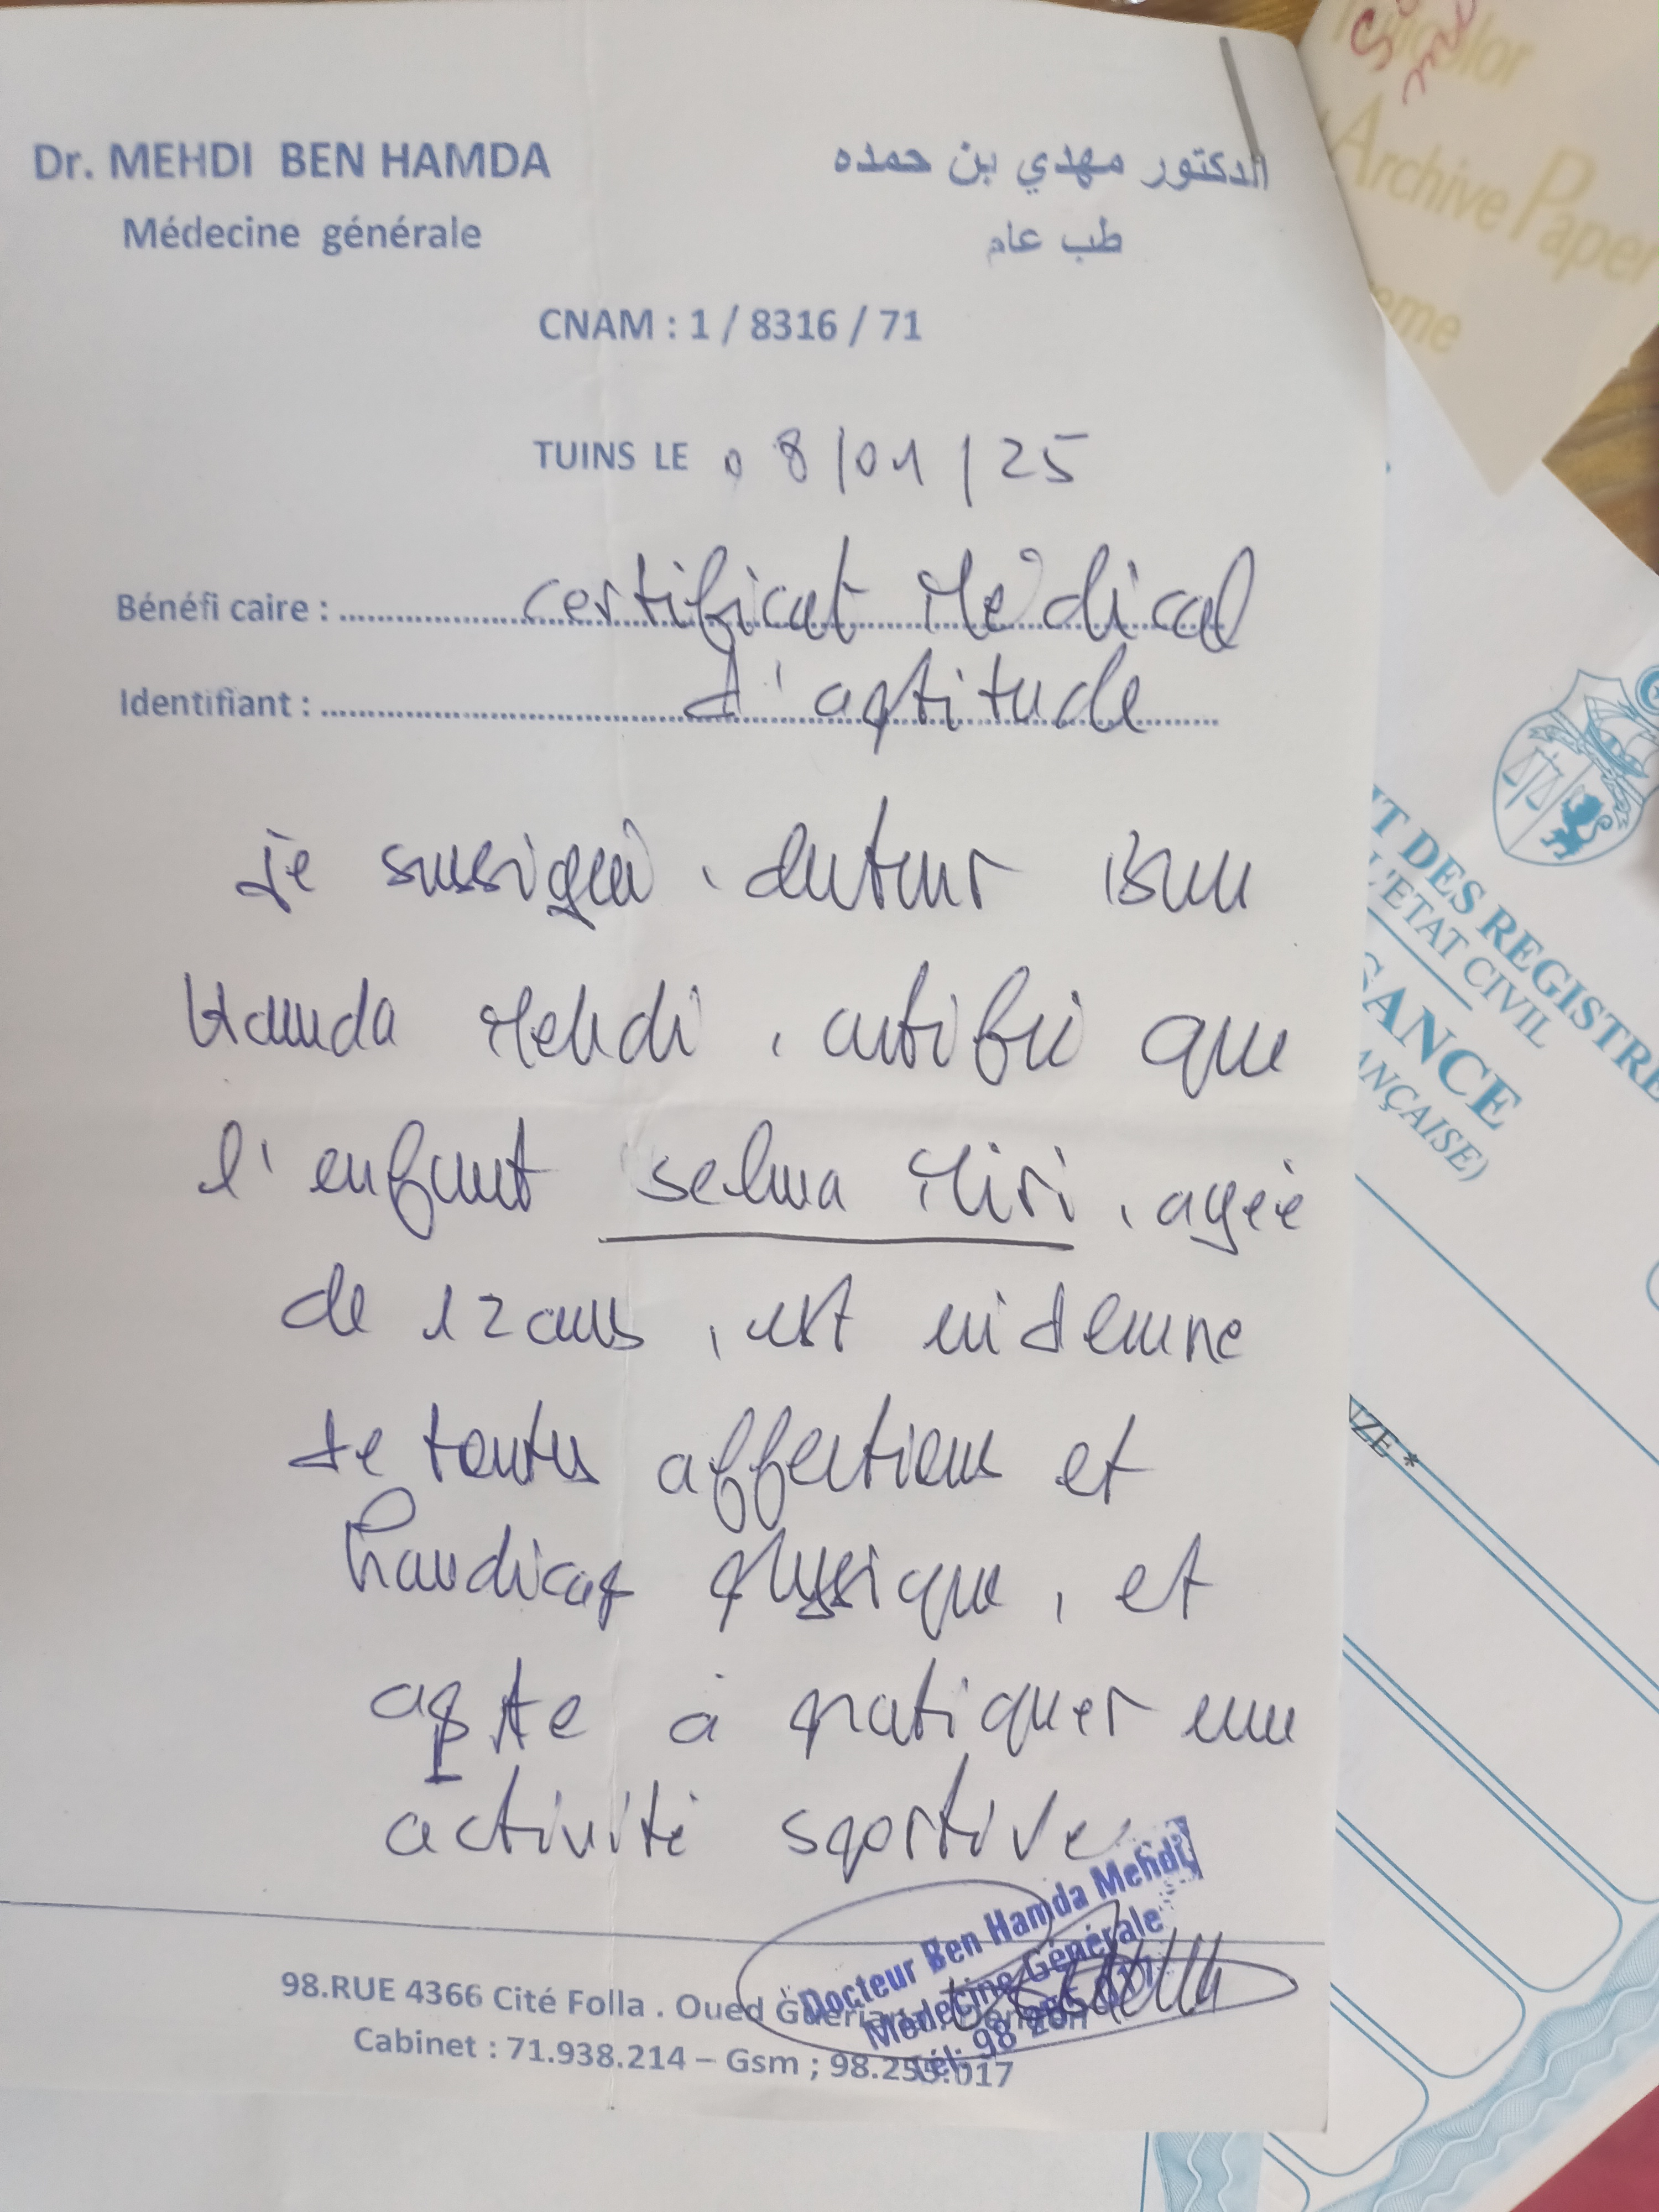 Dr. MEHDI BEN HAMDA
الدكتور مهدي بن حمده
Médecine générale
طب عام
CNAM : 1 / 8316 / 71
TUINS LE 08/01/25
Bénéfi caire : certificat Médical
Identifiant : d'aptitude
je sussigné, docteur Ben
Hamda Mehdi, certifie que
l'enfant selma Miri, agée
de 12 ans, est indemne
de toutes affections et
handicap physique, et
apte à pratiquer une
activité sportive
Docteur Ben Hamda Mehdi
Médecine Générale
Tél: 98
98.RUE 4366 Cité Folla . Oued
Cabinet : 71.938.214 – Gsm ; 98.255.017
Archive Paper
T DES REGISTRE
L'ETAT CIVIL
SANCE
ANÇAISE)
NZE *